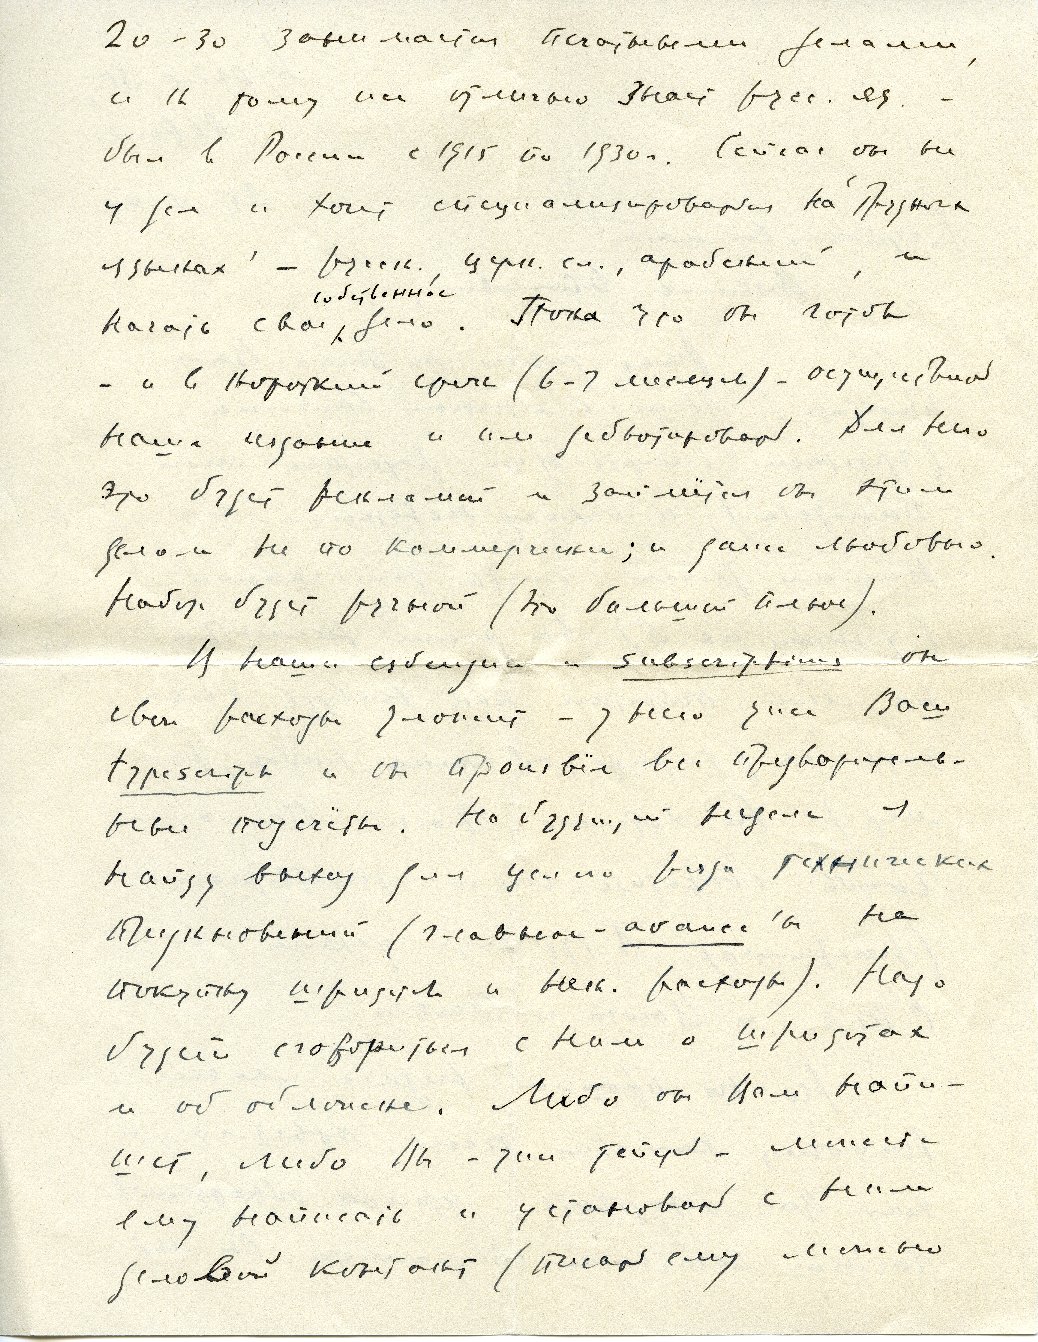 20–30 занимается печатными делами,
и к тому же отлично знает русск. яз. –
был в России с 1915 по 1930 г. Сейчас он не
у дел и хочет специализироваться на 'трудных
языках' – русск., церк. сл., арабский, и
начать свое собственное дело. Пока что он готов
– и в короткий срок (6–7 месяцев) – осуществить
наше издание и им дебютировать. Для него
это будет рекламой и займётся он этим
делом не по коммерчески; и даже любовью.
Набор будет ручной (это большой плюс).
В наши субсидии и subscriptions он
свои расходы уложит – у него уже Ваш
typescript и он произвёл все предваритель-
ные подсчёты. На будущей неделе я
найду выход для целого ряда технических
преткновений (главное – avance'ы на
покупку шрифтов и нек. расходы). Надо
будет сговориться с ним о шрифтах
и об обложке. Либо он Вам напи-
шет, либо Вы – уже теперь – можете
ему написать и установить с ним
деловой контакт (писать ему можно